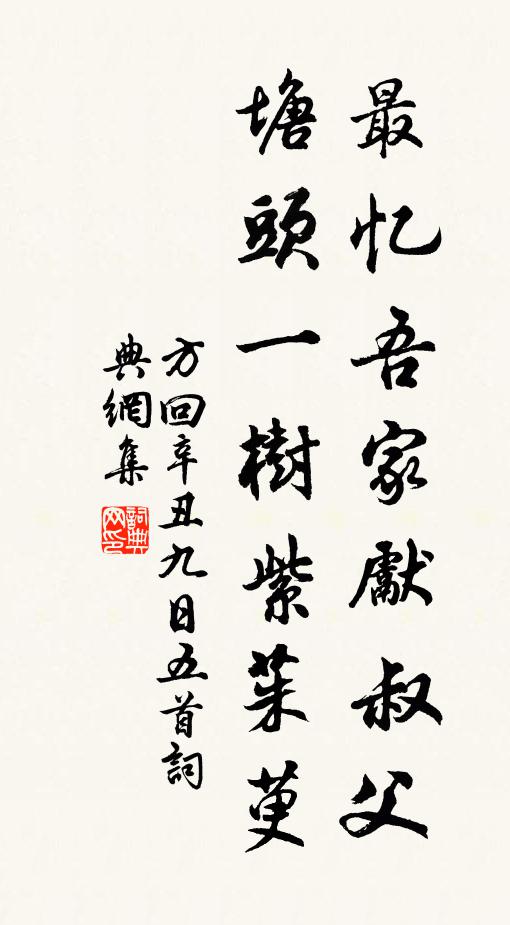 最忆吾家獻叔父
塘頭一樹紫茱萸
方回辛丑九日五首詞
典網集
詞典网印